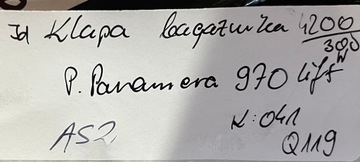 Jd Klapa bagażnika 4200
300
P. Panamera 970 lift W
K: 041
AS2 Q119